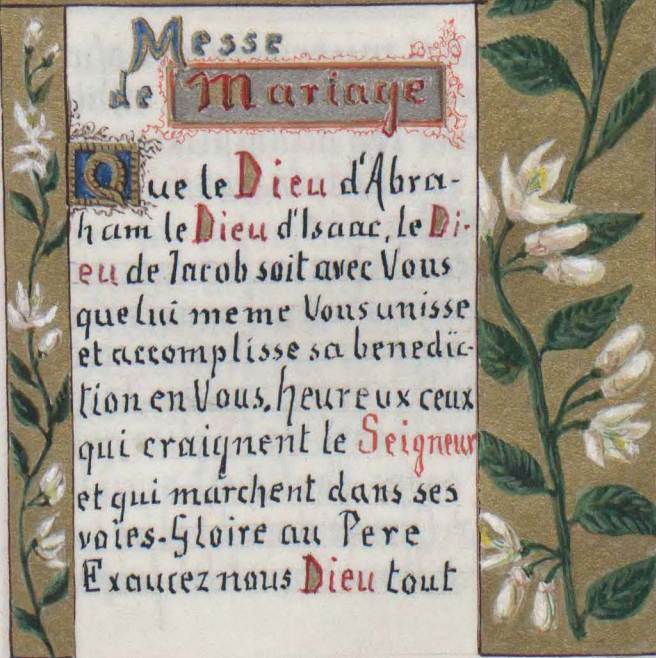 Messe
de Mariage
Que le Dieu d'Abra-
ham le Dieu d'Isaac, le Di-
eu de Jacob soit avec Vous
que lui meme Vous unisse
et accomplisse sa benedic-
tion en Vous, heureux ceux
qui craignent le Seigneur
et qui marchent dans ses
voies-Gloire au Pere
Exaucez nous Dieu tout